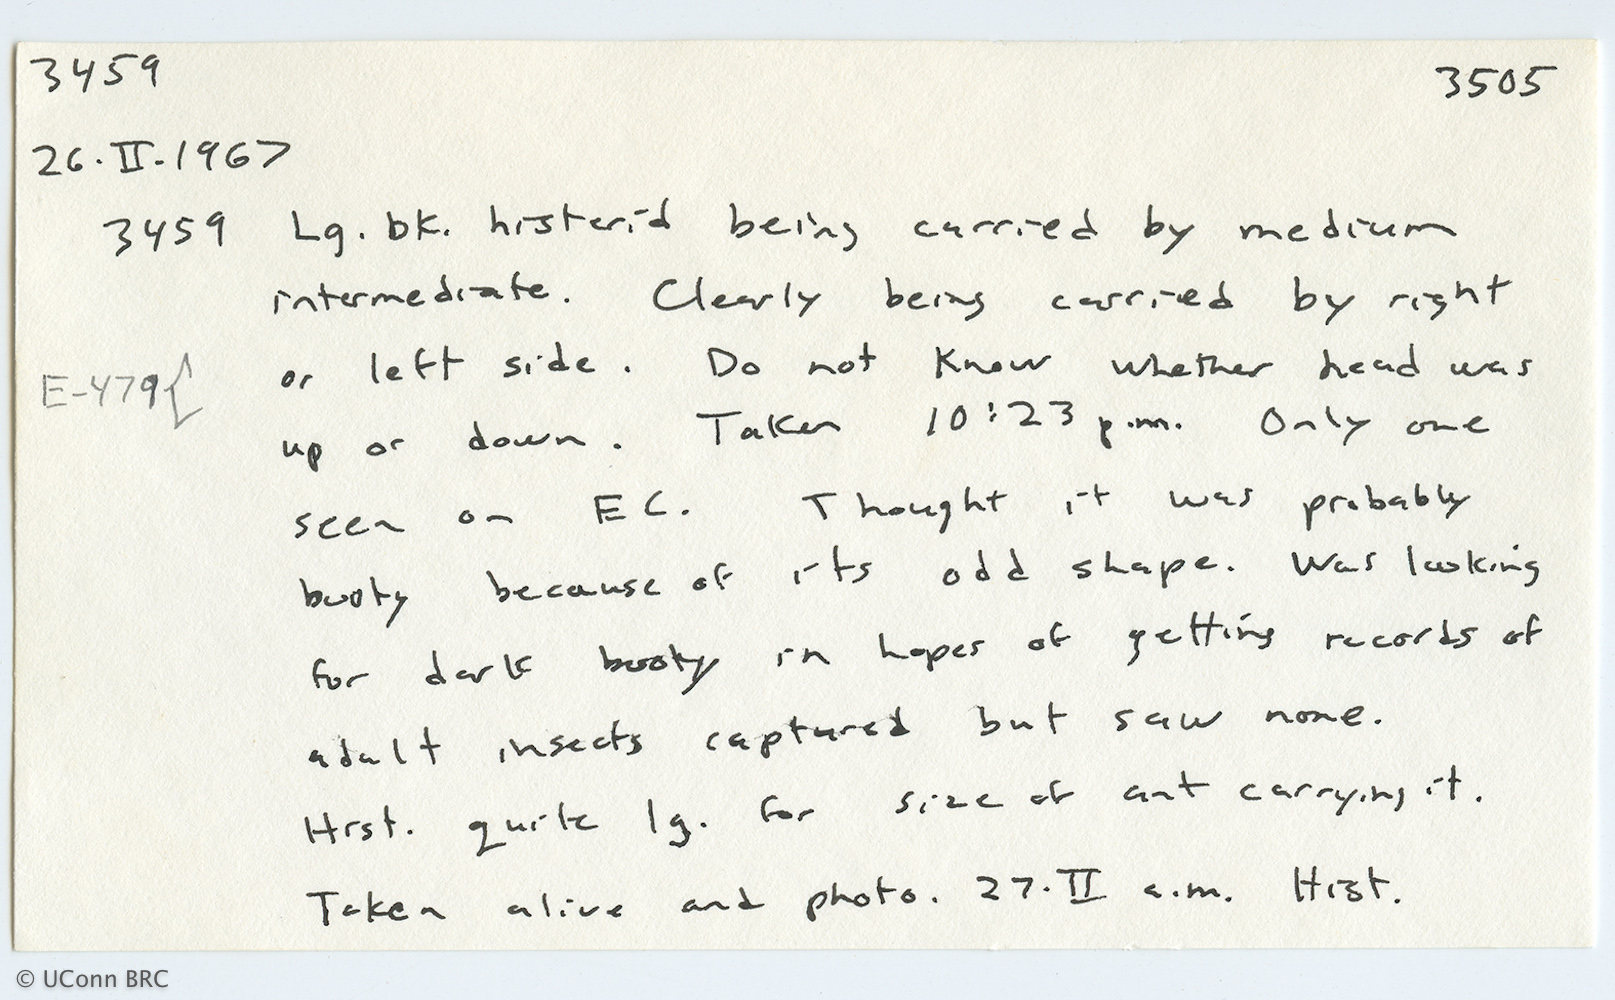 3459 3505
26.II.1967
3459 Lg. bk. histerid being carried by medium
intermediate. Clearly being carried by right
or left side. Do not know whether head was
E-479{
up or down. Taken 10:23 p.m. Only one
seen on EC. Thought it was probably
booty because of its odd shape. Was looking
for dark booty in hopes of getting records of
adult insects captured but saw none.
Hist. quite lg. for size of ant carrying it.
Taken alive and photo. 27.II a.m. Hist.
© UConn BRC